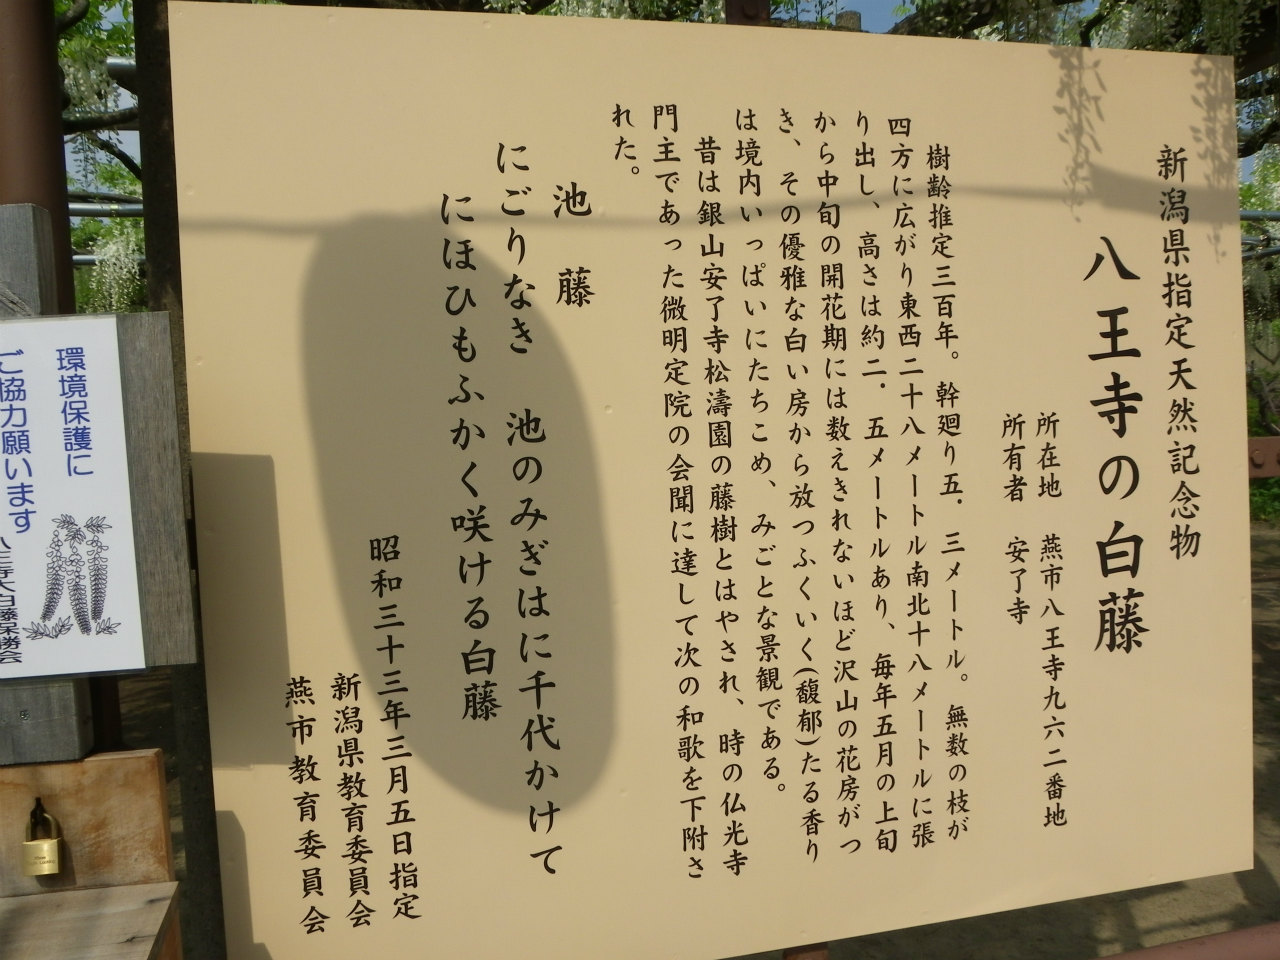 新潟県指定天然記念物
八王寺の白藤
所在地　燕市八王寺九六二番地
所有者　安了寺
樹齢推定三百年。幹廻り五．三メートル。無数の枝が
四方に広がり東西二十八メートル南北十八メートルに張
り出し、高さは約二．五メートルあり、毎年五月の上旬
から中旬の開花期には数えきれないほど沢山の花房がつ
き、その優雅な白い房から放つふくいく(馥郁)たる香り
は境内いっぱいにたちこめ、みごとな景観である。
昔は銀山安了寺松濤園の藤樹とはやされ、時の仏光寺
門主であった微明定院の会聞に達して次の和歌を下附さ
れた。
池　藤
にごりなき　池のみぎはに千代かけて
にほひもふかく咲ける白藤
昭和三十三年三月五日指定
新潟県教育委員会
燕市教育委員会
環境保護に
ご協力願います
八王寺大白藤保勝会